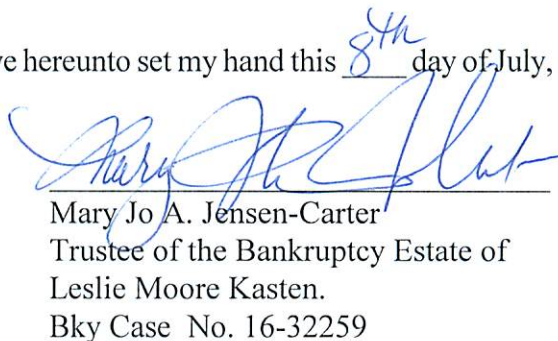 ve hereunto set my hand this 8th day of July,
Mary Jo A. Jensen-Carter
Trustee of the Bankruptcy Estate of
Leslie Moore Kasten.
Bky Case No. 16-32259